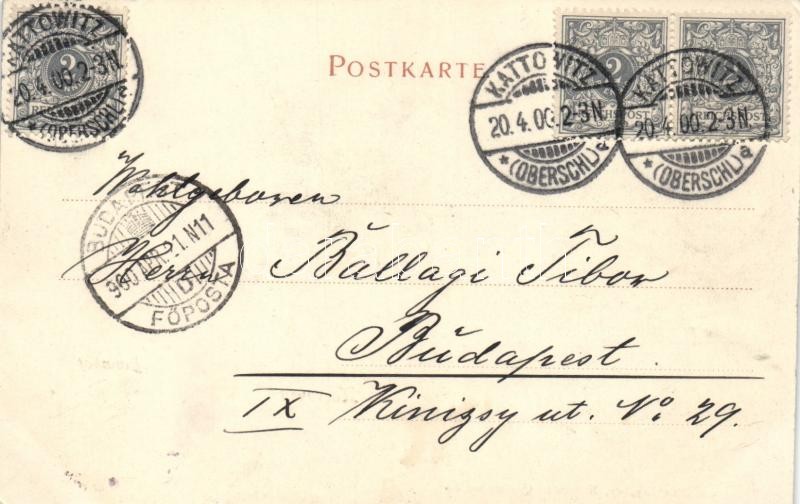 POSTKARTE
KATTOWITZ
20.4.00.2-3N
*(OBERSCHL)a
2
KATTOWITZ
20.4.00.2-3N
*(OBERSCHL)a
2
KATTOWITZ
20.4.00.2-3N
*(OBERSCHL)a
Wohlgeboren
Herrn Ballagi Tibor
Budapest.
IX Kinizsy ut. No 29.
FŐPOSTA